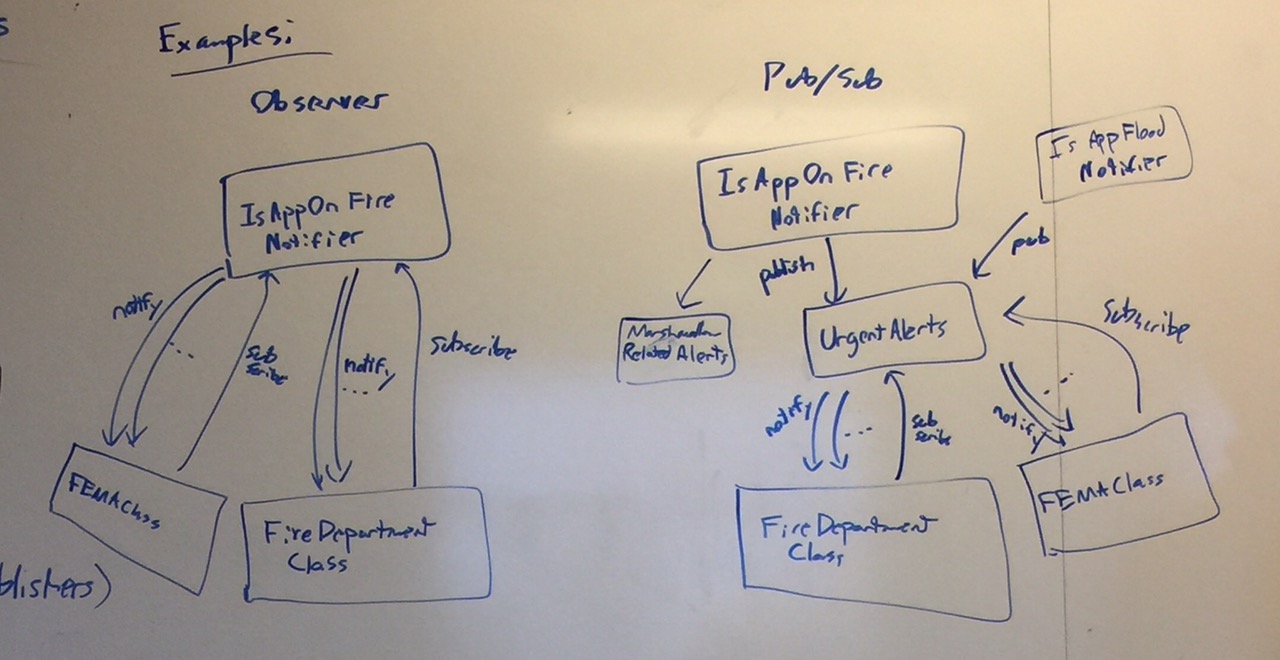 Examples:
Observer
IsAppOnFire
Notifier
notify
...
sub
scribe
notify
...
subscribe
FEMAClass
FireDepartment
Class
blishers)
Pub/Sub
IsAppOnFire
Notifier
Is AppFlood
Notifier
publish
pub
Related Alerts
UrgentAlerts
subscribe
notify
...
sub
scribe
notify
...
FireDepartment
Class
FEMAClass